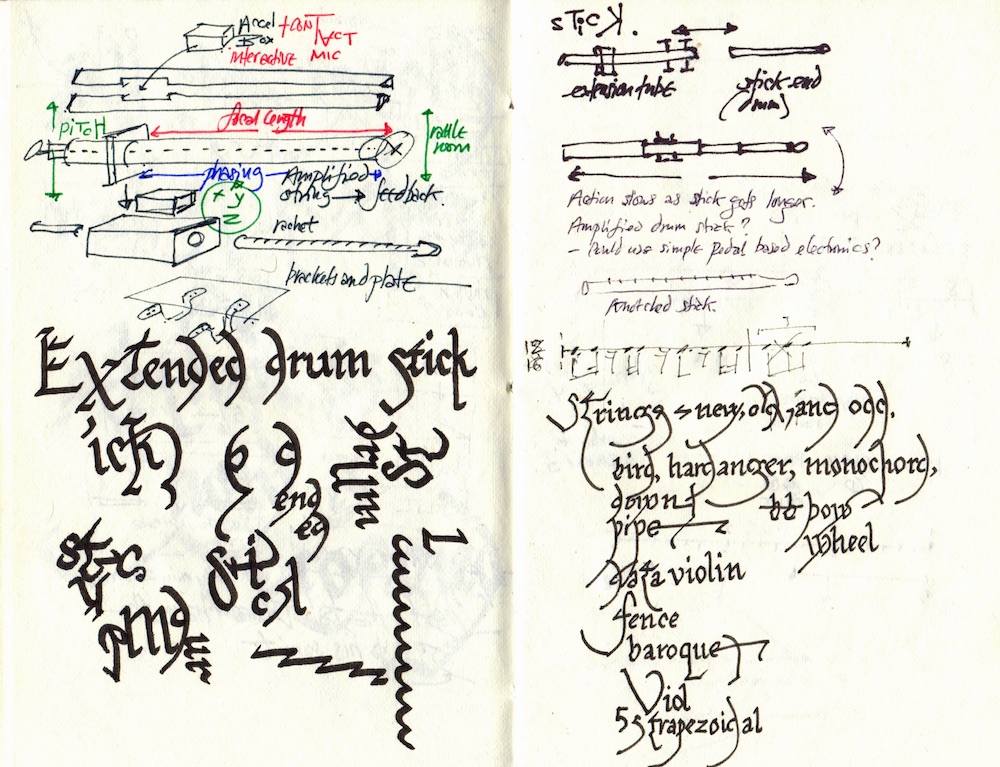 Accel
Box
+ CONTACT
MIC
interactive
PITCH
focal length
rattle
room
phasing
Amplified
string → feedback.
x y
z
rachet
brackets and plate
Extended drum stick
ick
ended
drum
sti
St
Stick
I
Stick.
extension tube
stick-end
Action slows as stick gets longer.
Amplified drum stick?
- Could use simple pedal based electronics?
knotched stick.
12
16
3
Strings - new, old, and odd.
bird, hardanger, monochord,
down
pipe
bb bow
wheel
data violin
fence
baroque
Viol
5 strapezoidal